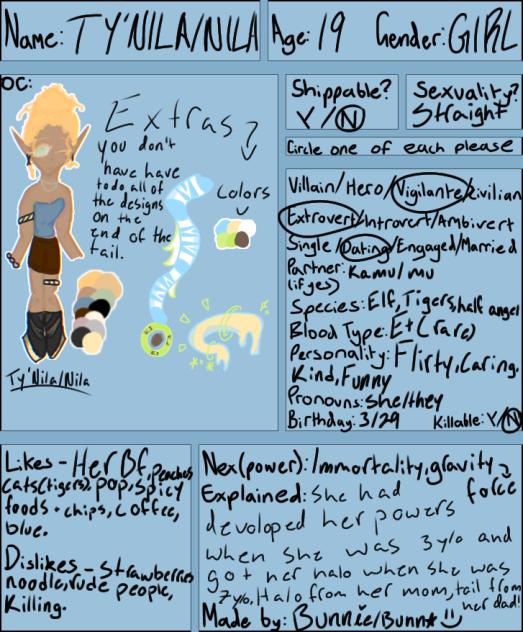 Name: TY'NILA/NILA
Age: 19 Gender: GIRL
OC:
Extras
you don't
have have
to do all of
the designs
on the
end of the
tail.
Colors
Ty'Nila/Nila
Shippable?
Y/N
Sexuality?
Straight
Circle one of each please
Villain/Hero/Vigilante/civilian
Extrovert/Introvert/Ambivert
Single/Dating/Engaged/Married
Partner: Kamu/mu
(if yes)
Species: Elf, Tigers, half angel
Blood Type: E+(rare)
Personality: Flirty, Caring,
Kind, Funny
Pronouns: she/they
Birthday: 3/29 Killable: Y/N
Likes - Her Bf, peaches
cats(tigers), pop, spicy
foods + chips, coffee,
blue.
Dislikes - strawberries
noodle, rude people,
Killing.
Nex(power): Immortality, gravity
force
Explained: she had
devoloped her powers
when she was 3y/o and
got her halo when she was
7y/o, Halo from her mom, tail from
her dad!
Made by: Bunnie/Bunn☆